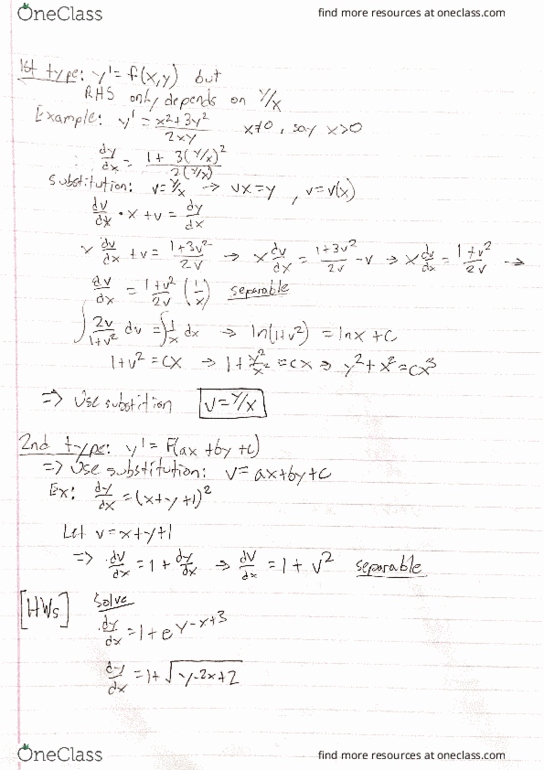 OneClass find more resources at oneclass.com
1st type: y' = f(x,y) but
RHS only depends on y/x
Example: y' = x²+3y² / 2xy x≠0, say x>0
dy/dx = 1+3(y/x)² / 2(y/x)
Substitution: v=y/x → vx=y, v=v(x)
dv/dx • x + v = dy/dx
x dv/dx + v = 1+3v²/2v → x dv/dx = 1+3v²/2v - v → x dv/dx = 1+v²/2v →
dv/dx = 1+v²/2v (1/x) separable
∫ 2v/1+v² dv = ∫ 1/x dx → ln(1+v²) = lnx + c
1+v² = cx → 1+ y²/x² = cx → y²+x² = cx³
=> Use substition v=y/x
2nd type: y' = F(ax+by+c)
=> Use substitution: v=ax+by+c
Ex: dy/dx = (x+y+1)²
Let v=x+y+1
=> dv/dx = 1+ dy/dx → dv/dx = 1+v² separable
[HWs] Solve
dy/dx = 1+e^y-x+3
dy/dx = 1+√y-2x+2
OneClass find more resources at oneclass.com